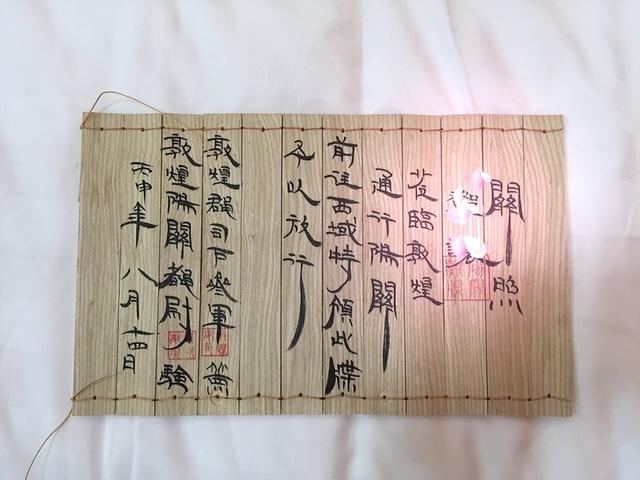 關照
蒞臨敦煌
通行陽關
前往西域特頒此牒
予以放行
敦煌郡司戶參軍籌
敦煌陽關都尉驗
丙申年八月十四日